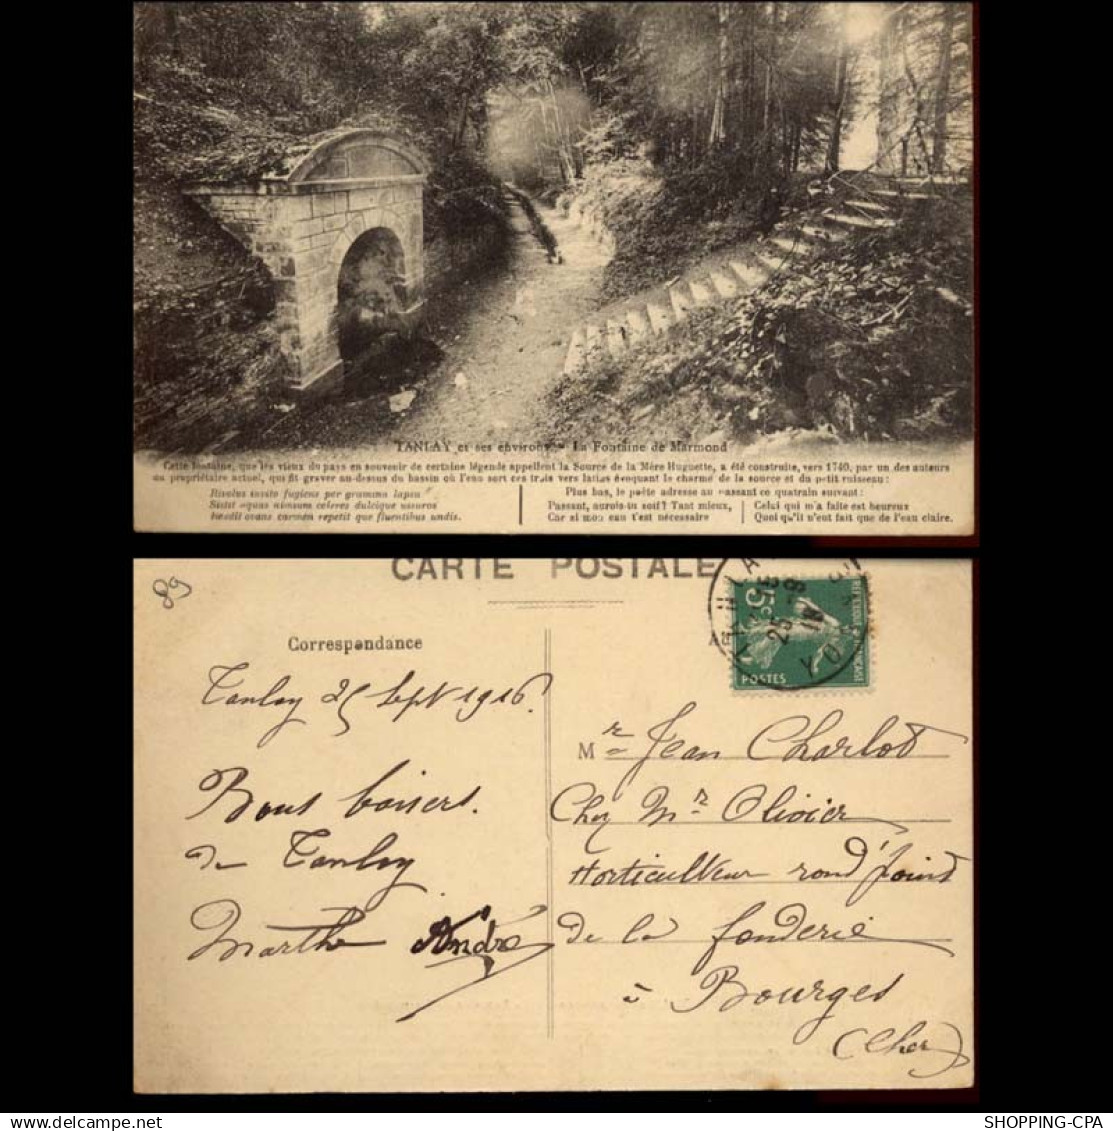 TANLAY et ses environs - La Fontaine de Marmond
Cette fontaine, que les vieux du pays en souvenir de certaine légende appellent la Source de la Mère Huguette, a été construite, vers 1740, par un des auteurs
du propriétaire actuel, qui fit graver au-dessus du bassin où l'eau sort ces trois vers latins évoquant le charme de la source et du petit ruisseau :
Rivulus invito fugiens per gramma lapsu
Sistit aquas nimsum celeres dulcique
ovans carmen repetit que fluentibus undis.
Plus bas, le poète adresse au passant ce quatrain suivant :
Passant, aurois-tu soif ? Tant mieux,
Car si mon eau t'est nécessaire
Celui qui m'a faite est heureux
Quoi qu'il n'eut fait que de l'eau claire.
89
CARTE POSTALE
Correspondance
5c
POSTES
25 - 9
16
YO
Tanlay 25 Sept 1916.
Bons baisers.
de Tanlay
Marthe André
Mr Jean Charlot
Chez Mr Olivier
Horticulteur rond point
de la fonderie
à Bourges
(Cher)
SHOPPING-CPA